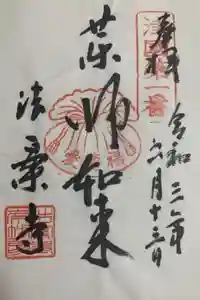 奉拝
令和三年
六月十三日
薬師如来
法案寺